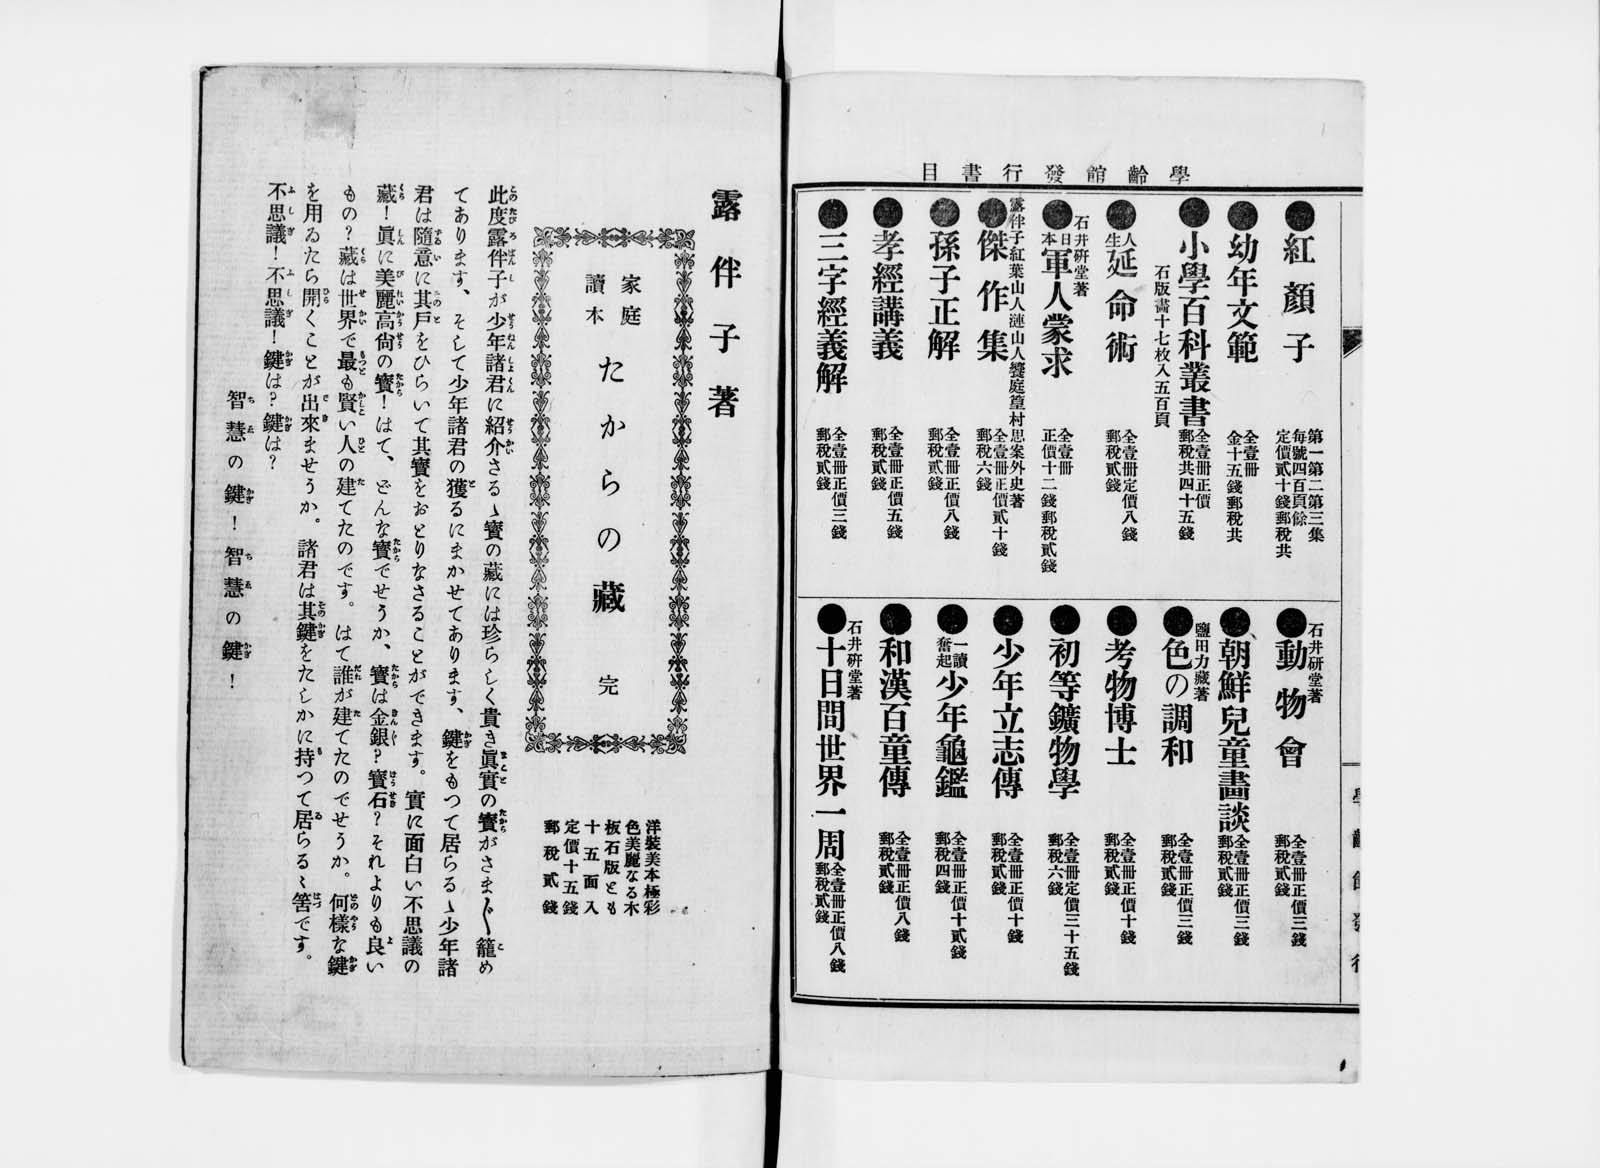 學齡館發行書目
●紅顏子
第一第二第三集
每號四百頁餘
定價貳十錢郵稅共
●幼年文範
全壹冊
金十五錢郵稅共
●小學百科叢書
石版畵十七枚入五百頁
全壹冊正價
郵稅共四十五錢
●人生延命術
全壹冊定價八錢
郵稅貳錢
石井研堂著
●日本軍人蒙求
全壹冊
正價十二錢郵稅貳錢
露伴子紅葉山人漣山人饗庭篁村思案外史著
●傑作集
全壹冊正價貳十錢
郵稅六錢
●孫子正解
全壹冊正價八錢
郵稅貳錢
●孝經講義
全壹冊正價五錢
郵稅貳錢
●三字經義解
全壹冊正價三錢
郵稅貳錢
石井研堂著
●動物會
全壹冊正價三錢
郵稅貳錢
●朝鮮兒童畫談
全壹冊正價三錢
郵稅貳錢
鹽田力藏著
●色の調和
全壹冊正價三錢
郵稅貳錢
●考物博士
全壹冊正價十錢
郵稅貳錢
●初等鑛物學
全壹冊定價三十五錢
郵稅六錢
●少年立志傳
全壹冊正價十錢
郵稅貳錢
●一讀奮起少年龜鑑
全壹冊正價十貳錢
郵稅四錢
●和漢百童傳
全壹冊正價八錢
郵稅貳錢
石井研堂著
●十日間世界一周
全壹冊正價八錢
郵稅貳錢
學齡館發行
露伴子著
家庭讀本 たからの藏 完
洋裝美本極彩
色美麗なる木
板石版とも
十五面入
定價十五錢
郵稅貳錢
此度露伴子が少年諸君に紹介さるゝ寶の藏には珍らしく貴き眞實の寶がさま〴〵籠め
てあります、そして少年諸君の獲るにまかせてあります、鍵をもつて居らるゝ少年諸
君は隨意に其戸をひらいて其寶をおとりなさることができます。實に面白い不思議の
藏！眞に美麗高尙の寶！はて、どんな寶でせうか、寶は金銀？寶石？それよりも良い
もの？藏は世界で最も賢い人の建てたのです。はて誰が建てたのでせうか。何樣な鍵
を用ゐたら開くことが出來ませうか。諸君は其鍵をたしかに持つて居らるゝ筈です。
不思議！不思議！鍵は？鍵は？
智慧の鍵！智慧の鍵！